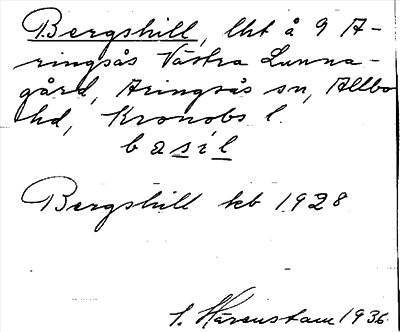 Bergshill, lht å 9 A-
ringsås Västra Lunna-
gård, Aringsås sn, Allbo
hd, Kronobs l.
basil
Bergshill kb 1928
S. Härenstam 1936